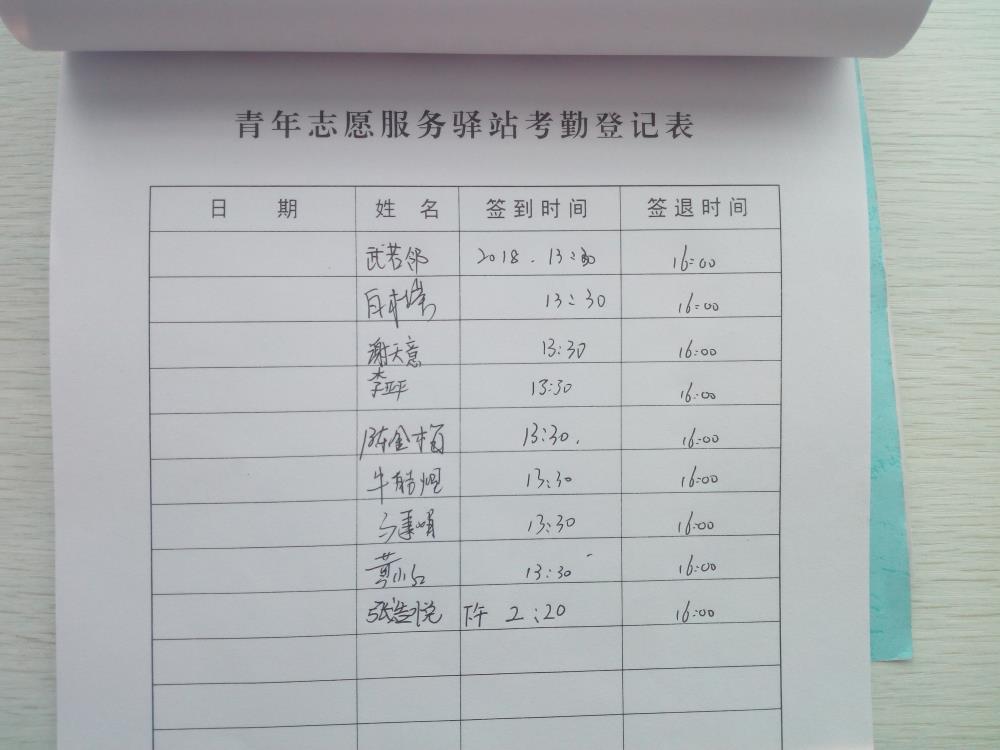 青年志愿服务驿站考勤登记表
日 期 姓 名 签到时间 签退时间
武若邻 2018 . 13:30 16:00
13:30 16:00
谢天意 13:30 16:00
李亚平 13:30 16:00
陈金梅 13:30. 16:00
牛皓煜 13:30 16:00
13:30 16:00
黄小红 13:30 16:00
张浩悦 下午 2:20 16:00